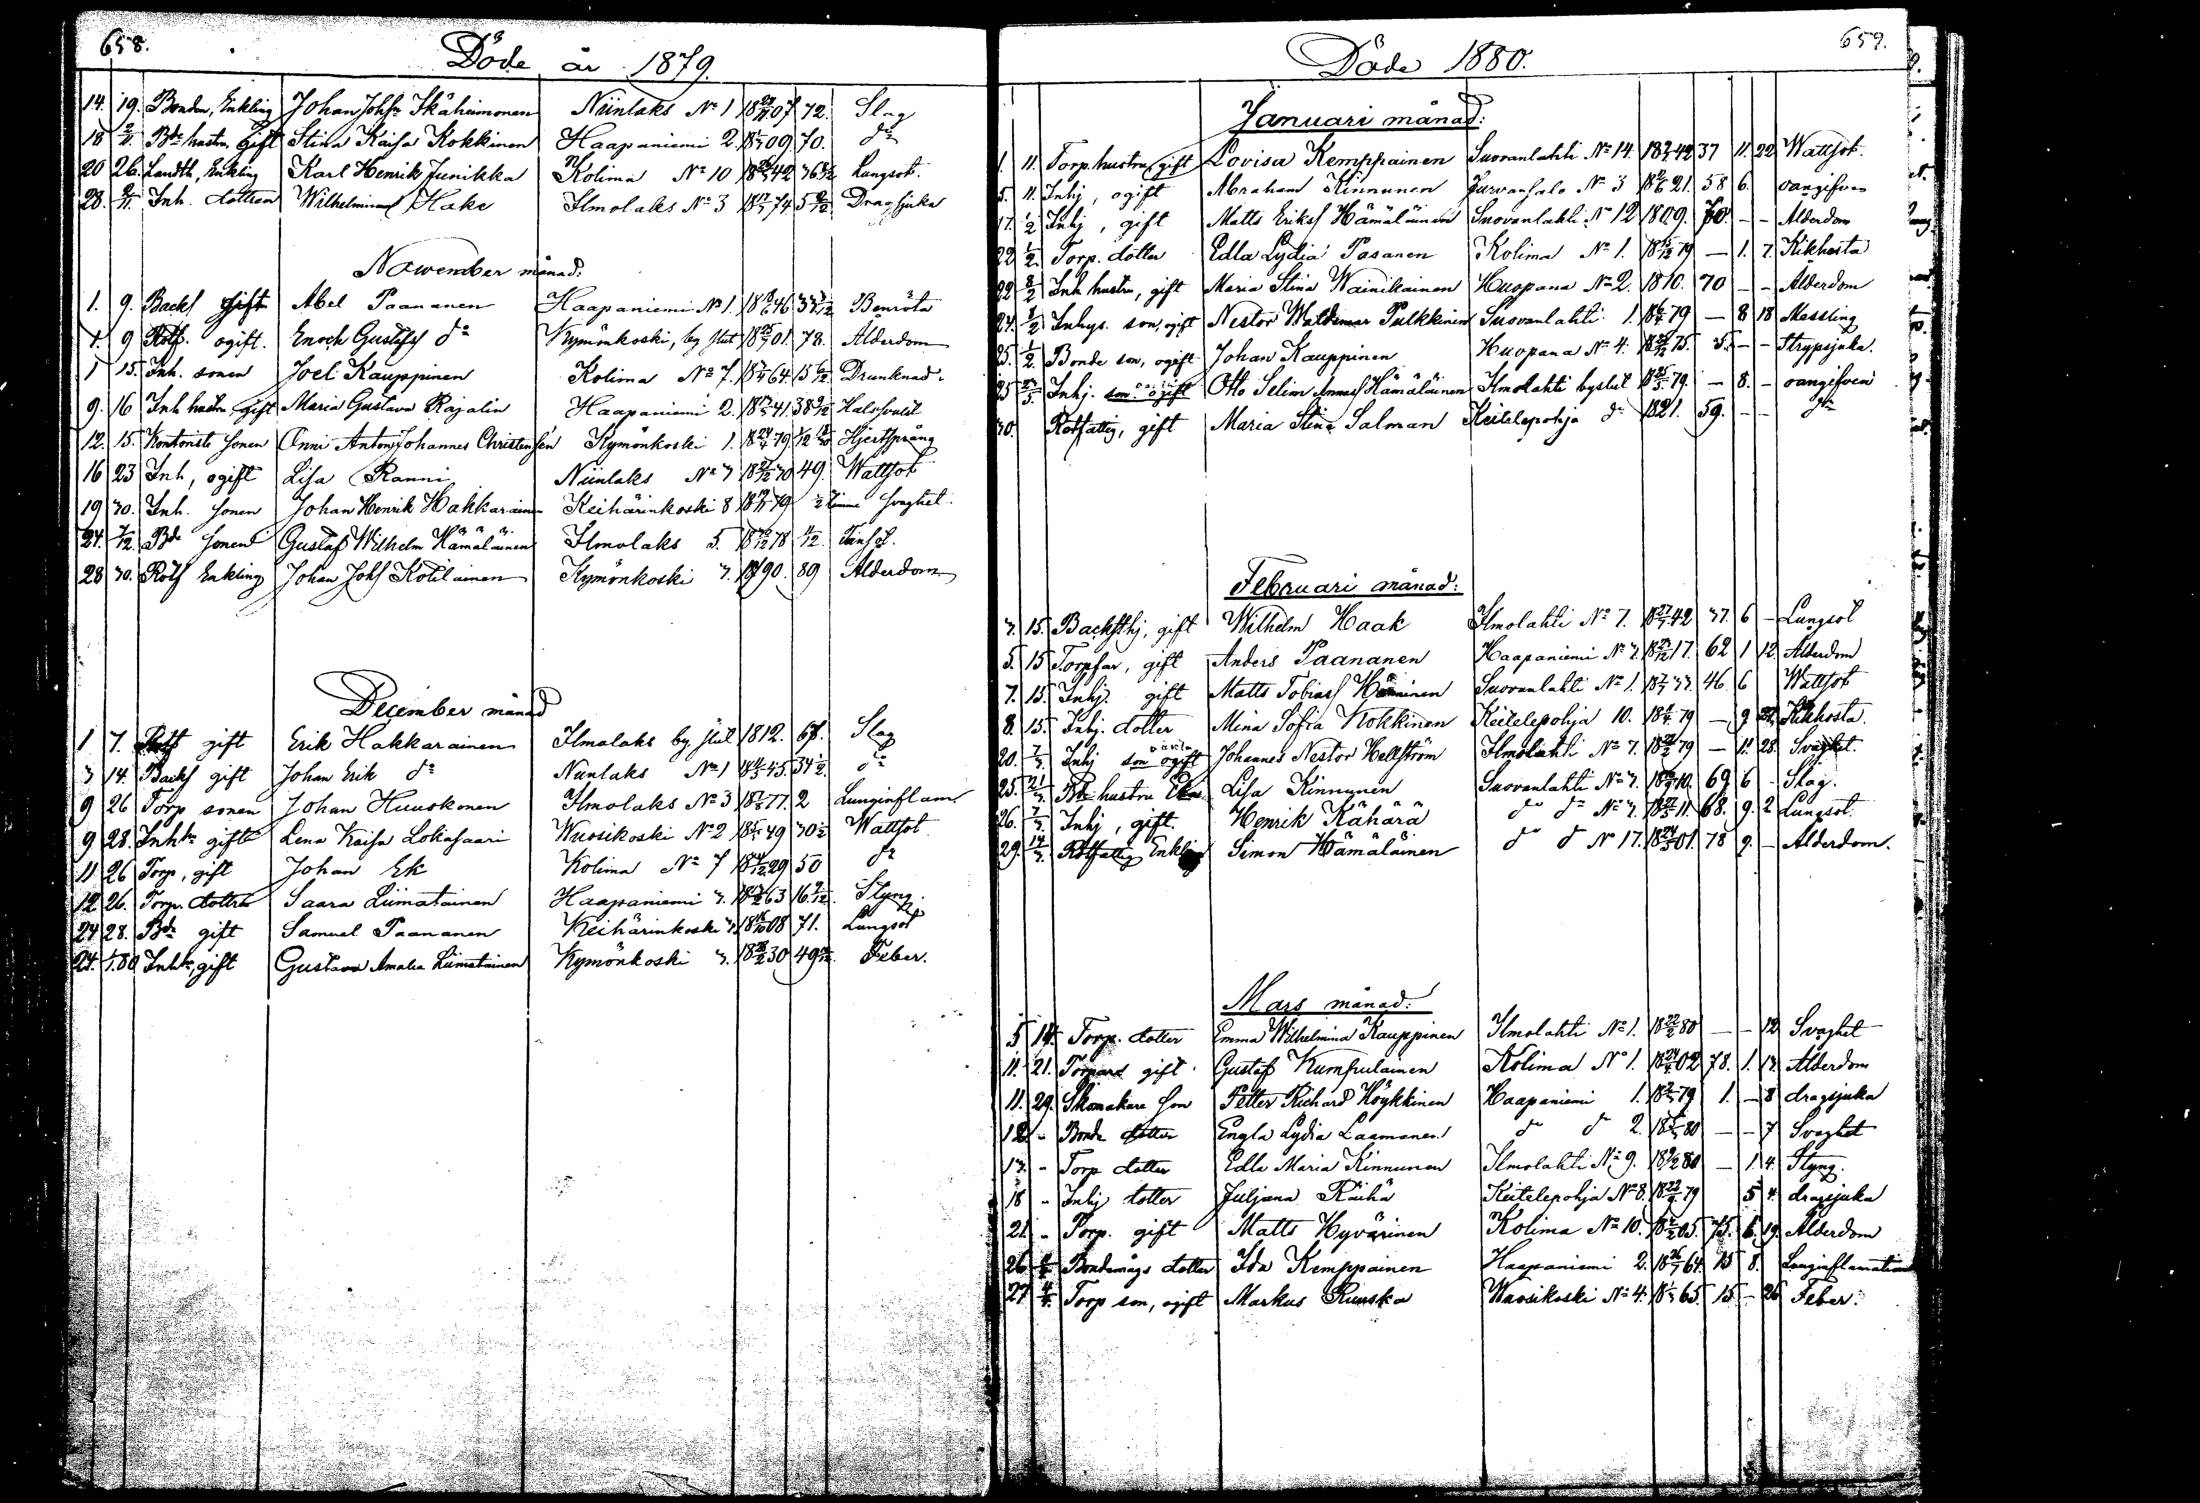 658.
Döde år 1879.
14. 19. Bonden, Enkling Johan Johsn Ikäheimonen Niinlaks No 1 18 07 72. Slag
18 2/11 Bde hustru, Gift Stina Kaisa Kokkinen Haapaniemi 2. 18 09 70. do
20 26. Landth, Enkling Karl Henrik Junikka Kolima No 10 18 42 36 Lungsot.
28. 2/11 Inh. dottren Wilhelmina Hake Ilmolaks No 3 18 74 5 Dragsjuka
November månad:
1. 9. Backs gift Abel Paananen Haapaniemi No 1. 18 46 33 Benröta
1. 9 Rotf. ogift. Enoch Gustafs do Kymönkoski, by slut 18 01. 78. Ålderdom
1 15. Inh. sonen Joel Kauppinen Kolima No 7. 18 64 15 Drunknad.
9. 16 Inh hustru, gift Maria Gustava Rajalin Haapaniemi 2. 18 41 38 Halssvulst
12. 15. sonen Onni Anton Johannes Christensén Kymönkoski 1. 18 79 Hjertsprång
16 23 Inh, ogift Lisa Ranni Niinlaks No 3 18 30 49. Wattsot
19 30. Inh. sonen Johan Henrik Hakkarainen Keihärinkoski 8 18 79 1/2 timme svaghet.
24. 7/12. Bde sonen Gustaf Wilhelm Hämäläinen Ilmolaks 5. 18 78 11/12.
28 30. Rotf Enkling Johan Johs Kotilainen Kymönkoski 3. 1790. 89 Ålderdom
December månad
1 7. Rotf gift Erik Hakkarainen Ilmolaks by slut 1812. 67. Slag
3 14. Backs gift Johan Erik do Niinlaks No 1 18 45. 34 1/2. do
9 26 Torp sonen Johan Huuskonen Ilmolaks No 3 18 77. 2 Lunginflam.
9 28. Inhhu gift Lena Kaisa Lokasaari Wuosikoski No 2 18 49 30 1/2 Wattsot
11 26 Torp, gift Johan Ek Kolima No 7 18 29 50 do
12 26. Torp. dottren Saara Liimatainen Haapaniemi 3. 18 63 16 Styng.
24 28. Bde gift Samuel Paananen Keihärinkoski 3. 18 08 71. Lungsot
24. 1/1.80 Inhhu, gift Gustava Amalia Liimatainen Kymönkoski 3. 18 30 49 Feber.
659.
Döde 1880.
Januari månad:
1. 11. Torp. hustru, gift Lovisa Kemppainen Suovanlahti No 14. 18 42 37 11. 22 Wattsot.
5. 11. Inhj, ogift Abraham Kinnunen Jurvansalo No 3 18 21. 58 6. oangifven
17. 1/2 Inhj, gift Matts Eriks Hämäläinen Suovanlahti No 12 1809. 70. - - Ålderdom
22 1/2. Torp. dotter Edla Lydia Pasanen Kolima No 1. 18 79 - 1. 7. Kikhosta
22 8/2 Inh hustru, gift Maria Stina Wainikainen Huopana No 2. 1810. 70 - - Ålderdom
24. 8/2 Inhys. son, ogift Nestor Waldemar Pulkkinen Suovanlahti 1. 18 79 - 8 18 Messling
25. 1/2. Bonde son, ogift Johan Kauppinen Huopana No 4. 18 75. 5. - - Strypsjuka.
25 Inhj. son. ogift Otto Selim Hämäläinen Ilmolahti byslut 18 79. - 8. - oangifven
30. Rotfattig, gift Maria Stina Salman Keitelepohja do 1821. 59. - - do
Februari månad:
3. 15. Backsthj, gift Wilhelm Haak Ilmolahti No 7. 18 42 37. 6 - Lungsot
5. 15 Torpfar, gift Anders Paananen Haapaniemi No 3. 18 17. 62 1 12. Ålderdom
7. 15. Inhj. gift Matts Tobias Hänninen Suovanlahti No 1. 18 33. 46. 6 Wattsot
8. 15. Inhj. dotter Mina Sofia Kokkinen Keitelepohja 10. 18 79 - 9 Kikhosta.
20. 7/3. Inhj son ogift Johannes Nestor Hellström Ilmolahti No 7. 18 79 - 11. 28. Svaghet.
25. 21/3. Bde hustru Lisa Kinnunen Suovanlahti No 3. 18 10. 69 6 - Slag.
26. 7/3. Inhj, gift. Henrik Kähärä do do No 3. 18 11. 68. 9. 2 Lungsot.
29. 14/3. Rotfattig Enkling Simon Hämäläinen do do No 17. 18 01. 78 9. - Ålderdom.
Mars månad:
5 14. Torp. dotter Emma Wilhelmina Kauppinen Ilmolahti No 1. 18 22/2 80 - - 12. Svaghet
11. 21. Torpare gift. Gustaf Kumpulainen Kolima No 1. 18 02 78. 1. 13. Ålderdom
11. 29. Skomakare son Petter Richard Höykkinen Haapaniemi 1. 18 79 1. - 8 dragsjuka
12. - Bonde dotter Engla Lydia Laamanen do do 2. 18 80 - - 7 Svaghet
13. - Torp dotter Edla Maria Kinnunen Ilmolahti No 9. 18 80 - 1. 4. Styng.
18 - Inhj dotter Juljana Räihä Keitelepohja No 8. 18 79 5 4. dragsjuka
21. - Torp. gift Matts Hyvärinen Kolima No 10. 18 05. 75. 6. 19. Ålderdom
26 Bondemågs dotter Ida Kemppainen Haapaniemi 2. 18 64. 15 8. Lunginflamation
27 4/4. Torp son, ogift Markus Ruuska Wuosikoski No 4. 18 65. 15 - 26 Feber.